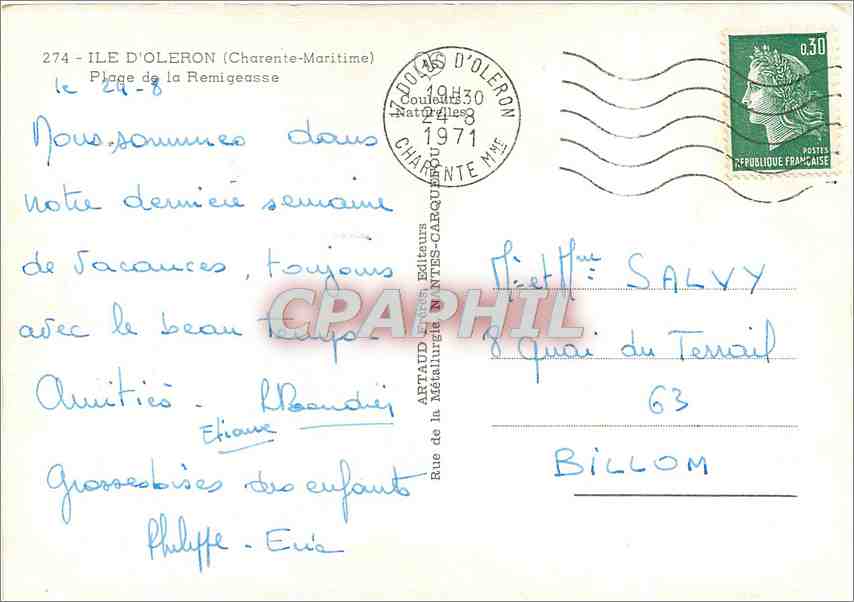 274 - ILE D'OLERON (Charente-Maritime)
Plage de la Remigeasse
le 24-8
Nous sommes dans
notre dernière semaine
de vacances, toujours
avec le beau temps
Amitiés -
Etiane
Grosses bises des enfants
Philippe - Eric
Couleurs
Naturelles
ARTAUD Frères, Editeurs
Rue de la Métallurgie, NANTES-CARQUEFOU
17 DOLUS D'OLERON
19H30
24-8
1971
CHARENTE MME
0,30
POSTES
REPUBLIQUE FRANÇAISE
Mr et Mme SALVY
8 Quai du Terrail
63
BILLOM
CPAPHIL